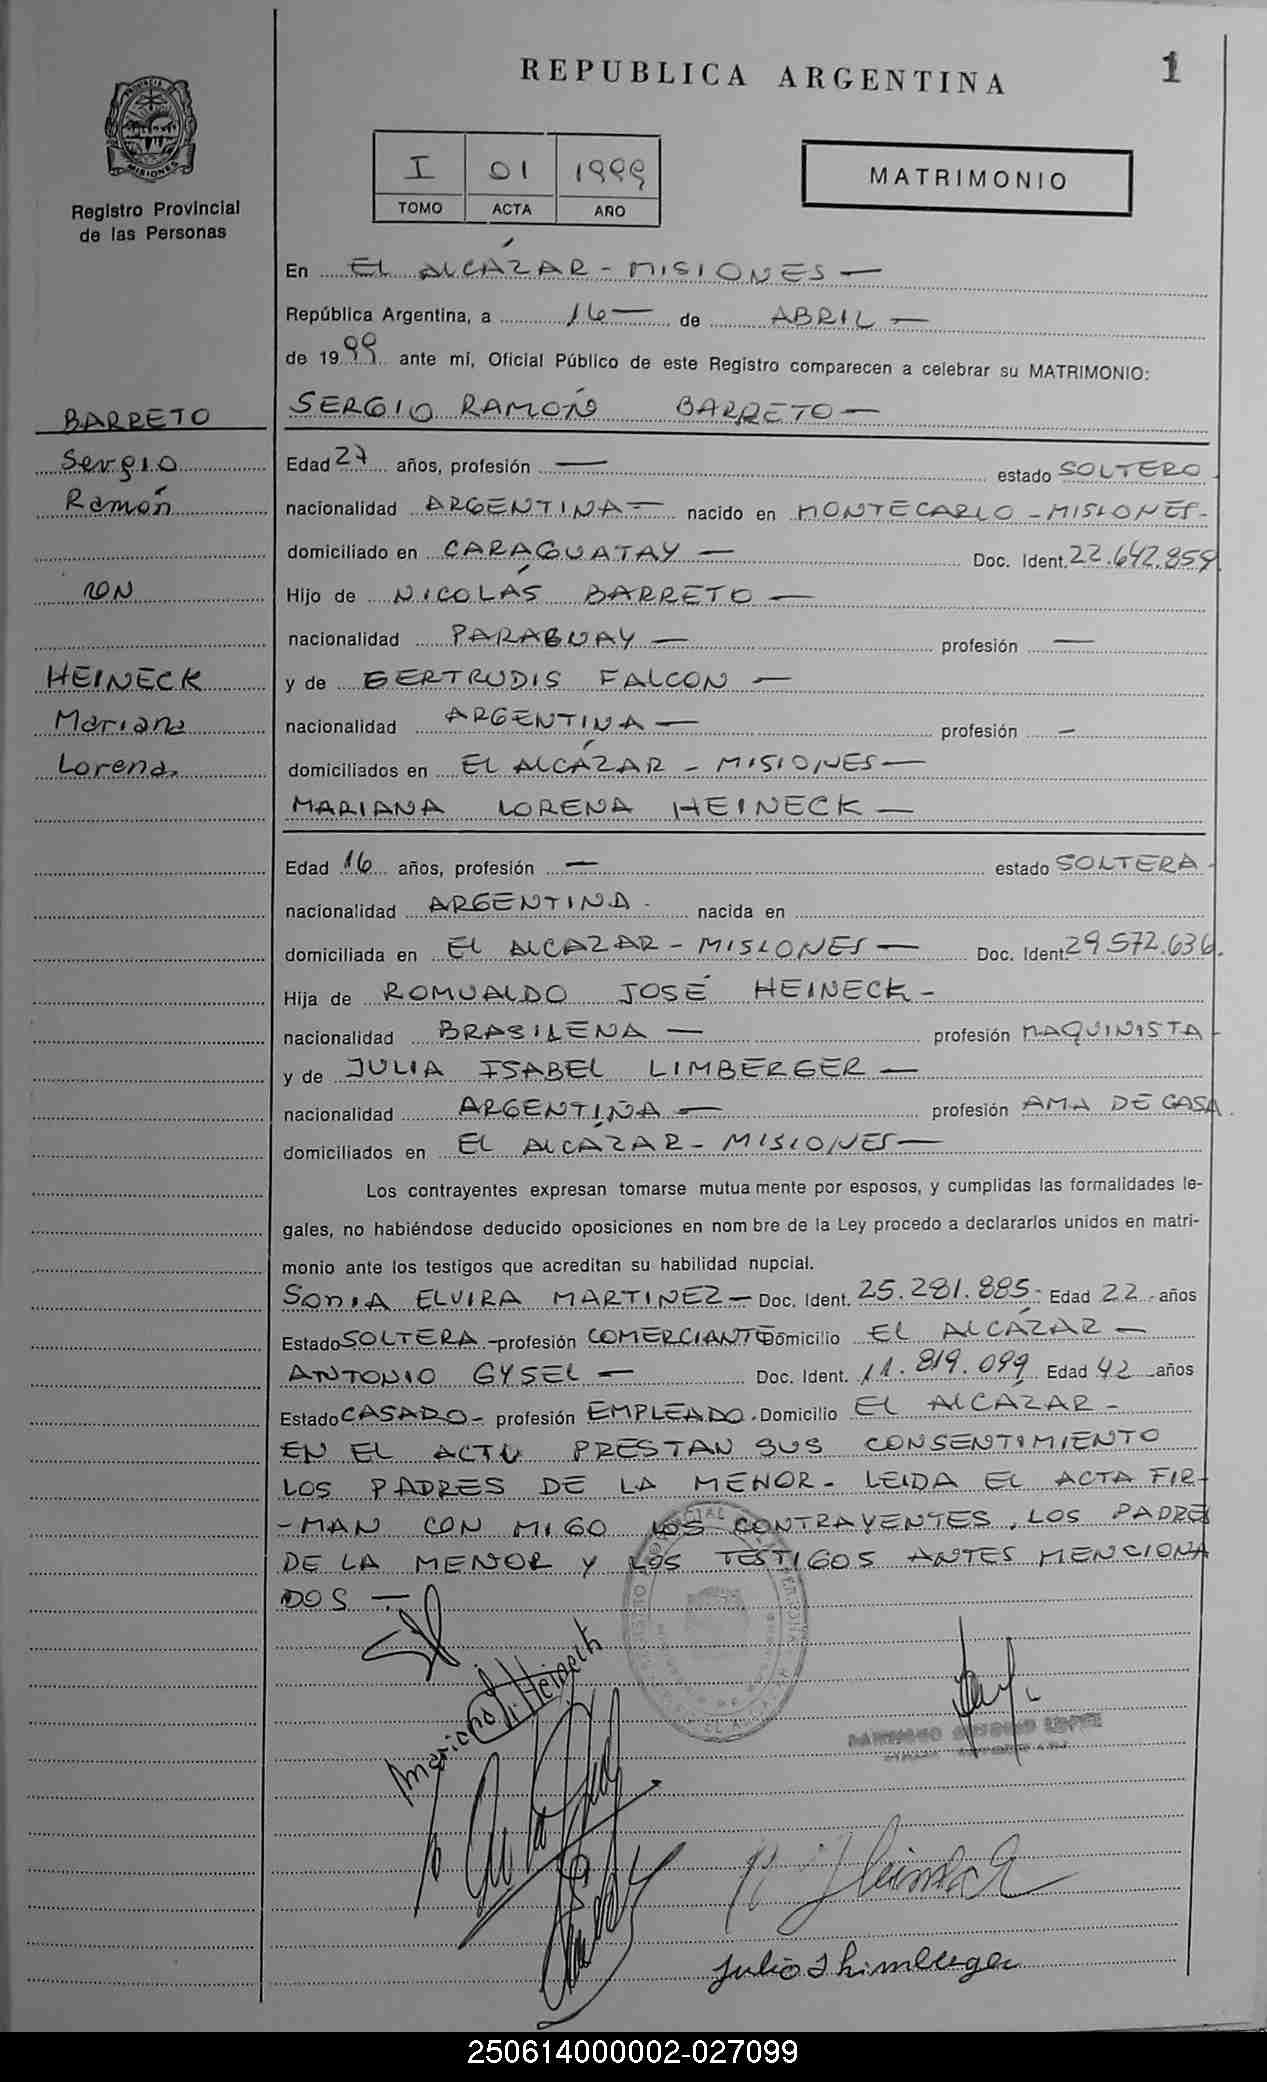 REPUBLICA ARGENTINA
1
PROVINCIA DE
MISIONES
Registro Provincial
de las Personas
I 01 1999
TOMO ACTA AÑO
MATRIMONIO
En EL ALCÁZAR - MISIONES —
República Argentina, a 16 — de ABRIL —
de 1999 ante mí, Oficial Público de este Registro comparecen a celebrar su MATRIMONIO:
BARRETO
SERGIO RAMÓN BARRETO —
Sergio
Edad 27 años, profesión — estado SOLTERO
Ramón
nacionalidad ARGENTINA — nacido en MONTECARLO - MISIONES-
domiciliado en CARAGUATAY — Doc. Ident. 22.642.859
CON
Hijo de NICOLÁS BARRETO —
nacionalidad PARAGUAY — profesión —
HEINECK
y de GERTRUDIS FALCON —
Mariana
nacionalidad ARGENTINA — profesión —
Lorena
domiciliados en EL ALCÁZAR - MISIONES —
MARIANA LORENA HEINECK —
Edad 16 años, profesión — estado SOLTERA -
nacionalidad ARGENTINA - nacida en
domiciliada en EL ALCAZAR - MISIONES — Doc. Ident. 29.572.636.
Hija de ROMUALDO JOSÉ HEINECK -
nacionalidad BRASILENA — profesión MAQUINISTA -
y de JULIA ISABEL LIMBERGER —
nacionalidad ARGENTINA — profesión AMA DE CASA.
domiciliados en EL ALCAZAR - MISIONES —
Los contrayentes expresan tomarse mutua mente por esposos, y cumplidas las formalidades le-
gales, no habiéndose deducido oposiciones en nom bre de la Ley procedo a declararlos unidos en matri-
monio ante los testigos que acreditan su habilidad nupcial.
SONIA ELVIRA MARTINEZ — Doc. Ident. 25.281.885- Edad 22 - años
Estado SOLTERA - profesión COMERCIANTE Domicilio EL ALCÁZAR —
ANTONIO GYSEL — Doc. Ident. 11.819.099 Edad 42 años
Estado CASADO - profesión EMPLEADO - Domicilio EL ALCÁZAR -
EN EL ACTO PRESTAN SUS CONSENTIMIENTO
LOS PADRES DE LA MENOR - LEIDA EL ACTA FIR-
-MAN CON MIGO LOS CONTRAYENTES, LOS PADRES
DE LA MENOR Y LOS TESTIGOS ANTES MENCIONA
DOS —
Mariana L. Heineck
LOPEZ
Heineck
Julia I Limberger
250614000002-027099